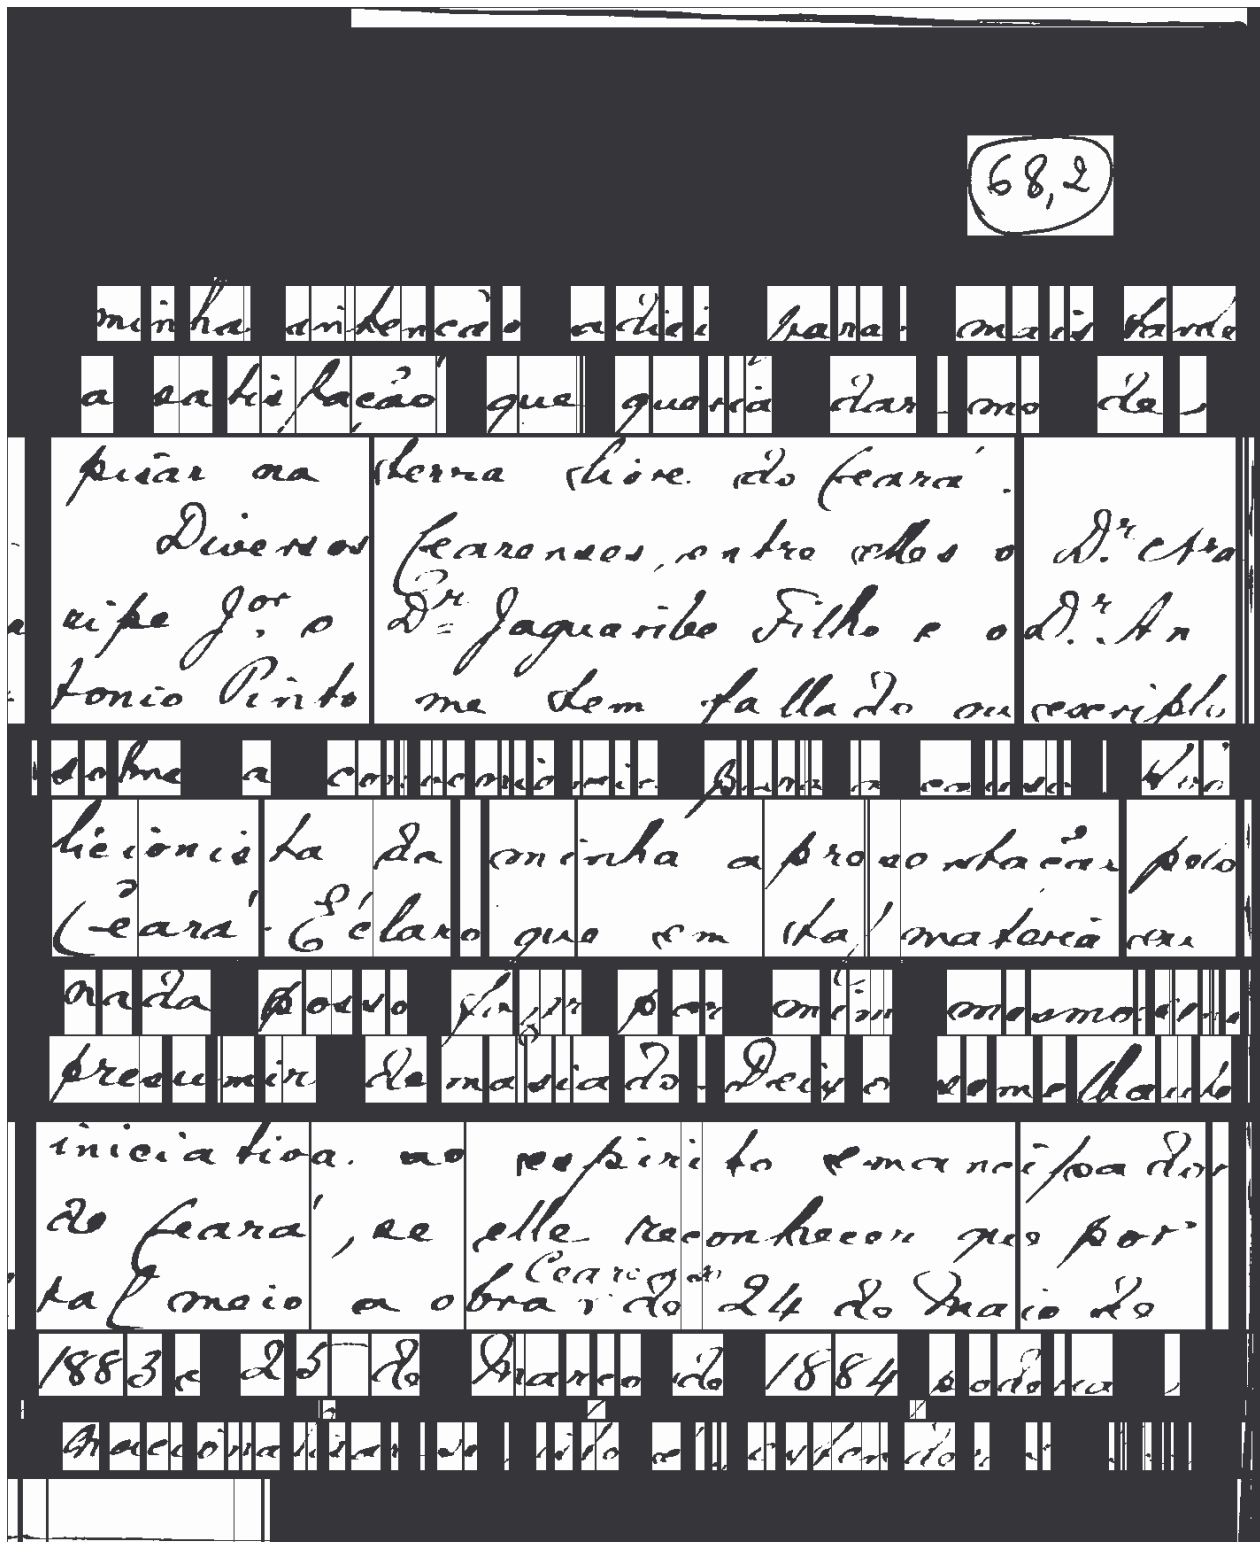 68,2
minha intenção adiei para mais tarde
a satisfação que queria dar-me de
pisar na terra livre do Ceará.
Diversos Cearenses, entre elles o Dr. Ara
ripe Jor. o Dr. Jaguaribe Filho e o Dr. An
tonio Pinto me tem fallado ou escripto
sobre a conveniencia para a causa abo
licionista da minha apresentação pelo
Ceará. É claro que em tal materia eu
nada posso fazer por mim mesmo sem
presumir demasiado. Deixo semelhante
iniciativa ao espirito emancipador
do Ceará, se elle reconhecer que por
tal meio a obra Cearense de 24 de Maio de
1883 e 25 de Março de 1884 poderia
nacionalisar-se, isto é, estender-se